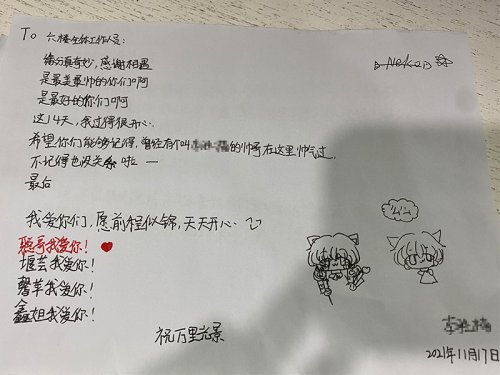 To 六楼全体工作人员:
缘分真奇妙,感谢相遇
是最美最帅的你们啊
是最好的你们啊
这14天,我过得很开心.
希望你们能够记得,曾经有个叫的帅哥在这里帅气过.
不记得也没关系啦 一
最后
我爱你们,愿前程似锦,天天开心
哥我爱你!
堰芸我爱你!
馨苹我爱你!
鑫姐我爱你!
祝万里光景
2021年11月17日